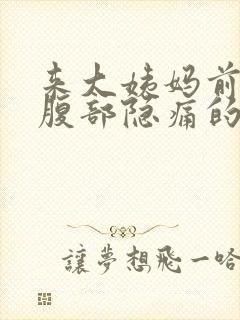 来大姨妈前
腹部隐痛的
讓夢想飛一哈